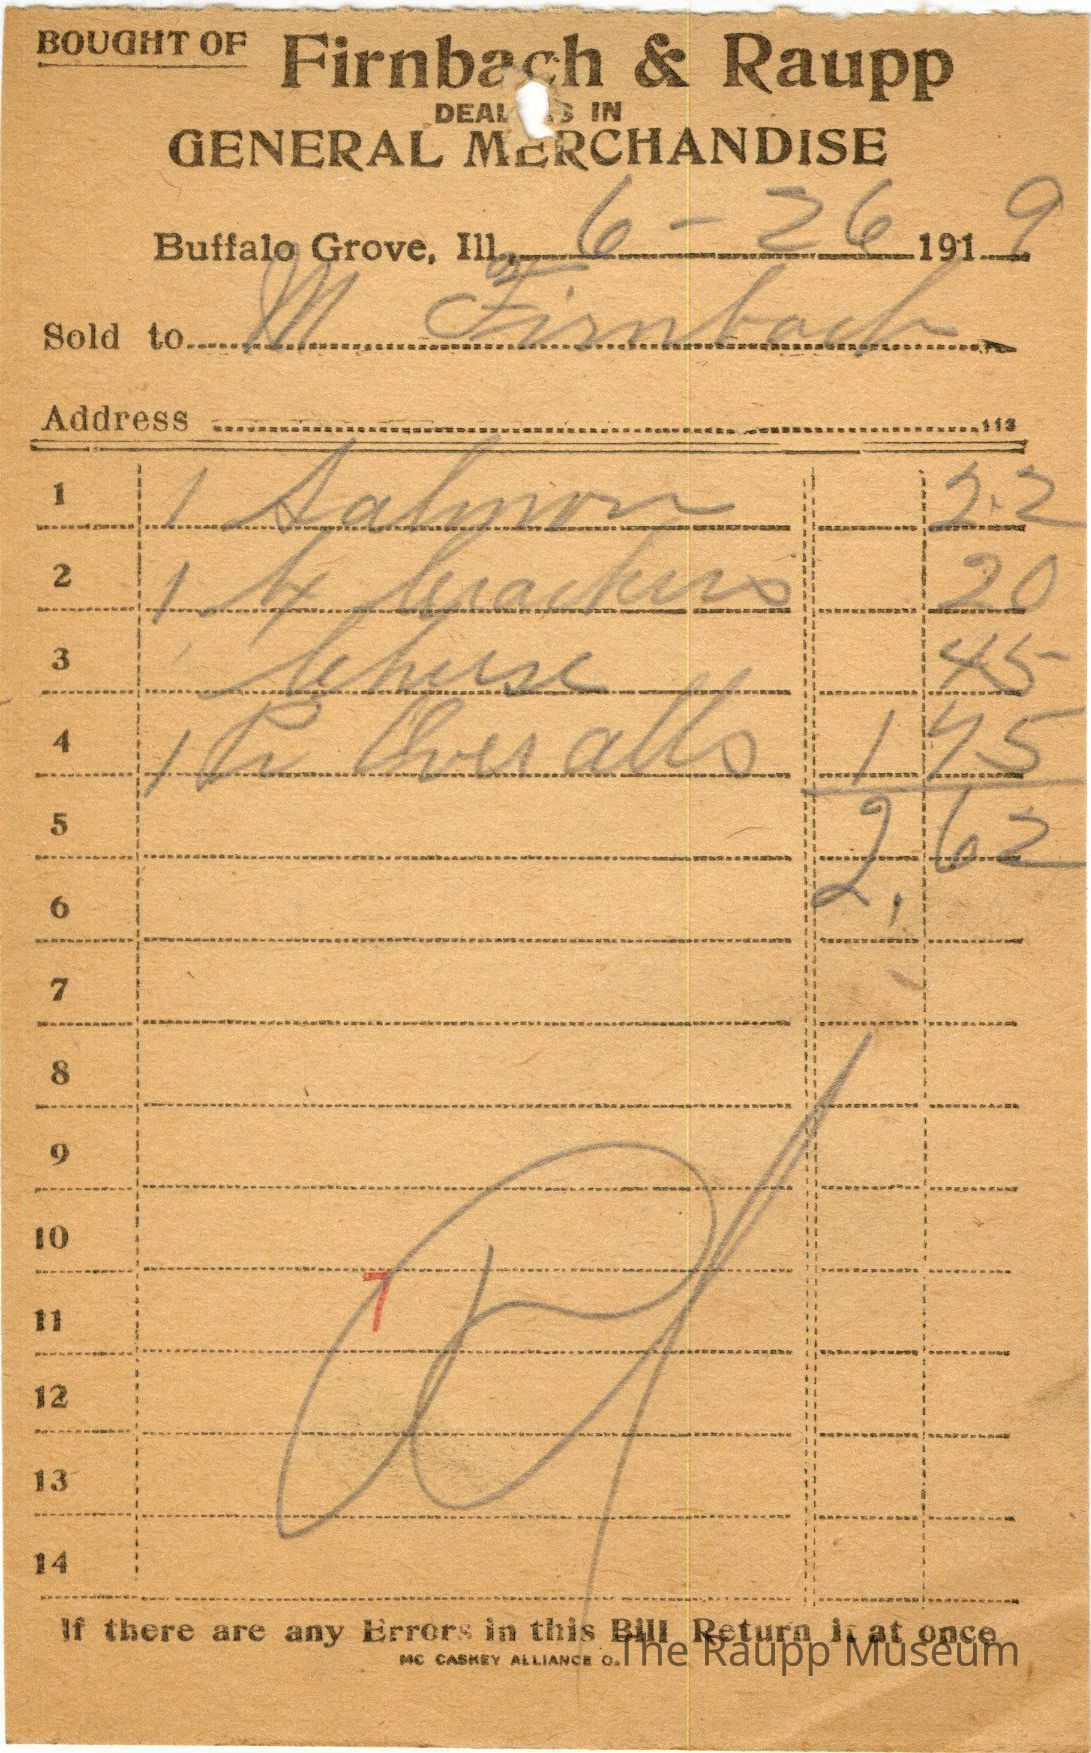 BOUGHT OF Firnbach & Raupp
DEALERS IN
GENERAL MERCHANDISE
Buffalo Grove, Ill., 6-26 1919
Sold to M Firnbach
Address 113
1 1 Salmon 22
2 1 # Crackers 20
3 1 Cheese 45
4 1 Pr Overalls 1 75
5 2,62
6
7
8
9
10
7
11
12
13
14
If there are any Errors in this Bill Return it at once
MC CASKEY ALLIANCE O.
The Raupp Museum